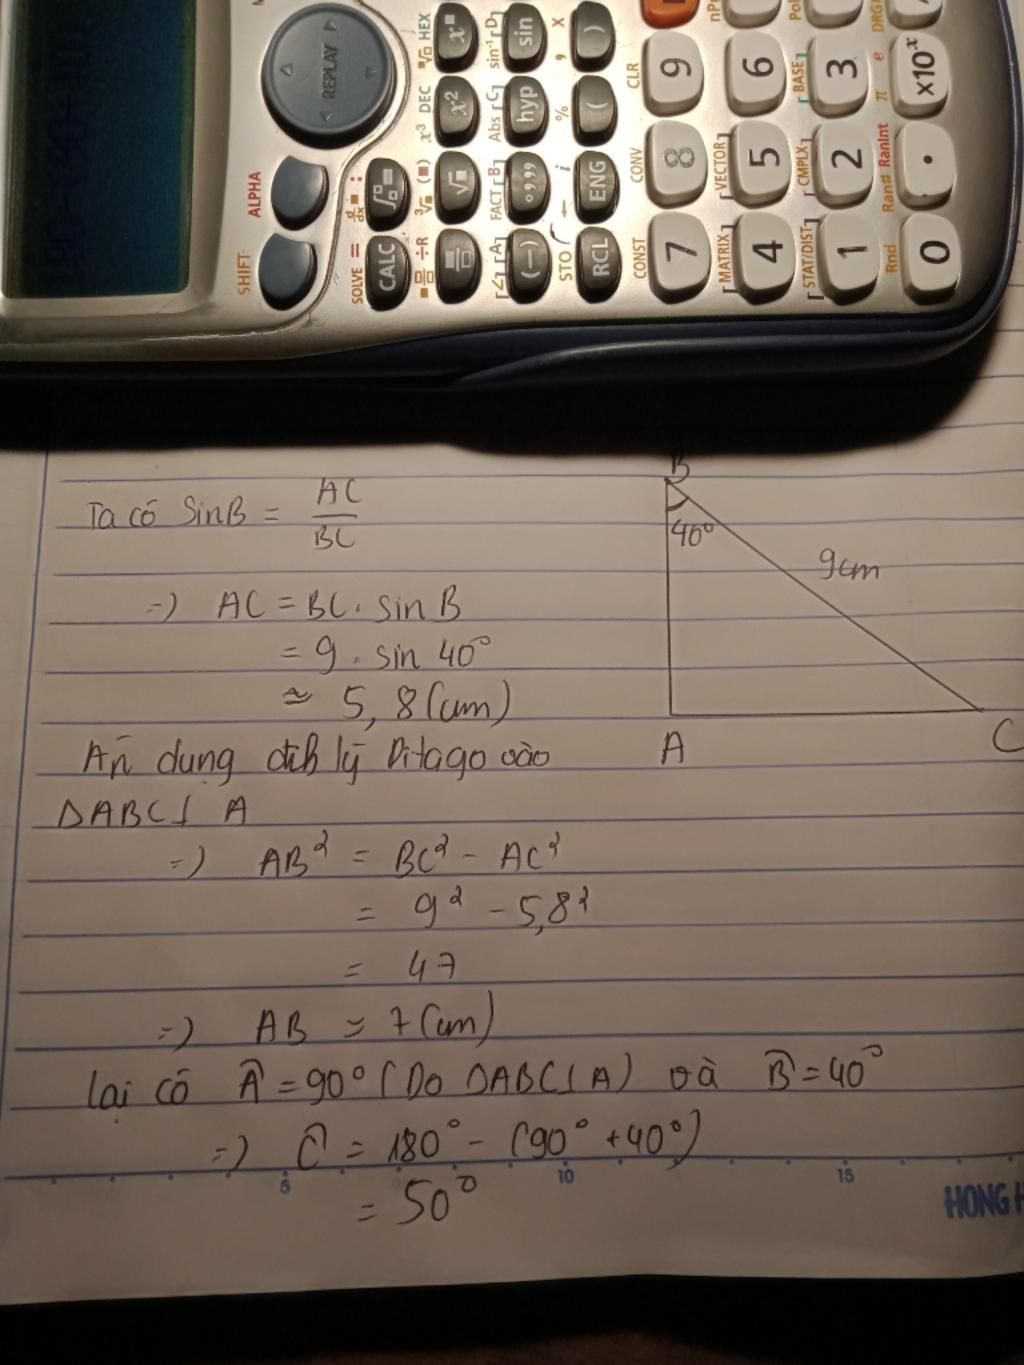 SHIFT
ALPHA
REPLAY
SOLVE = d/dx :
CALC ∫
÷R ³√ (■) x³ DEC ˣ√ HEX
√■ x² x■
∠ [A] FACT [B] Abs [C] sin⁻¹ [D]
(−) °,,, hyp sin
STO ← i % , X
RCL ENG ( )
CONST CONV CLR
7 8 9
[MATRIX] [VECTOR]
4 5 6
[STAT/DIST] [CMPLX] [BASE]
1 2 3
Rnd Ran# RanInt π e DRG
0 . ×10ˣ
Ta có SinB = AC/BC
=) AC = BC. sin B
= 9 . sin 40°
≈ 5,8 (cm)
Áp dụng định lý Pitago vào
ΔABC⊥ A
=) AB² = BC² - AC²
= 9² - 5,8²
= 47
=) AB ≈ 7 (cm)
lại có Â = 90° (Do ΔABC⊥A) và B̂ = 40°
=) Ĉ = 180° - (90° + 40°)
= 50°
B
40°
9cm
A
C
5 10 15
HONG H